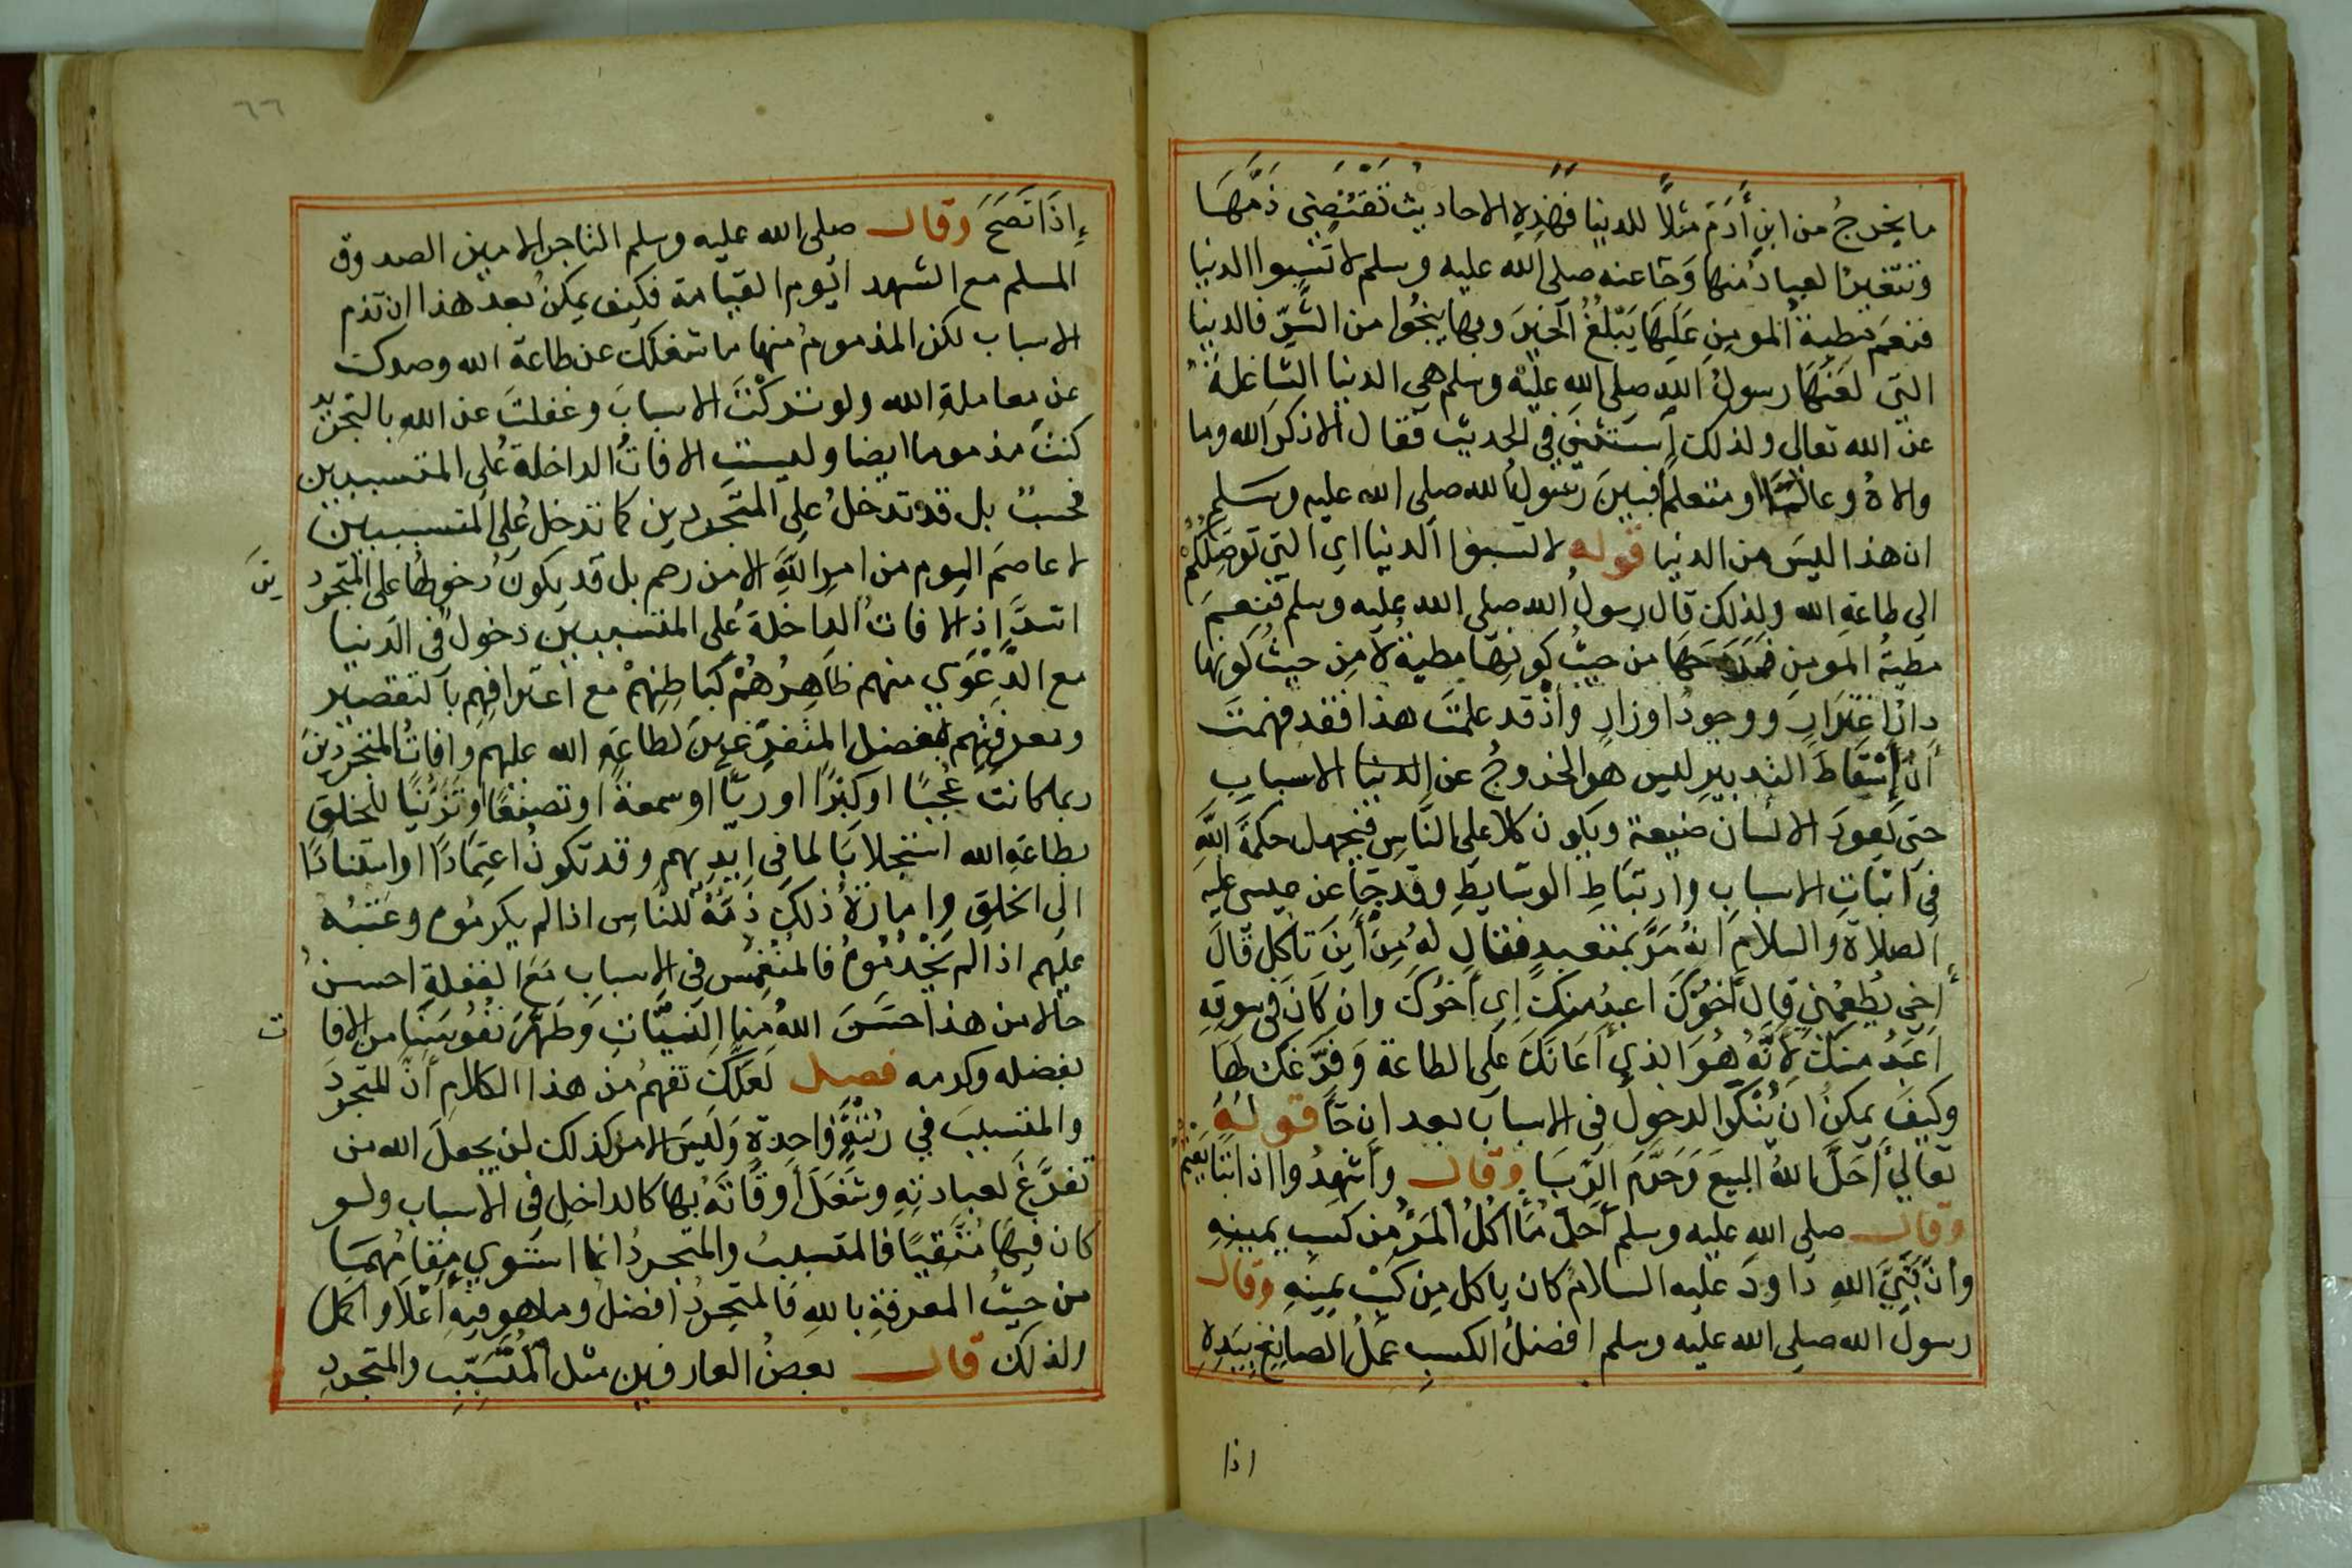 ما يخرجُ من ابنِ أَدَمَ مثلاً للدنيا فهٰذِهِ الاحاديثُ تَقتَضِي ذَمَّهَا
وتنفيرُ العبادُ منها وَجَا عنه صلى الله عليه وسلم لا تَسُبوا الدنيا
فنعمَ مطيةُ المومنِ عَلَيهَا يَبْلُغُ اَلخيرَ وبها ينجُوا من الشَرِّ فالدنيا
التي لعَنَهَا رسولُ اللهِ صلى الله عليه وسلم هي الدنيا الشاغلةُ
عن الله تعالى ولذلك إِستثنى في الحديث فقال الا ذكرَ الله وما
والاهُ وعالمًا او متعلمًا فبينَ رسُولُ الله صلى الله عليه وسلم
ان هذا ليسَ من الدنيا قوله لا تسبوا اَلدنيا اي التي تُوصِلُكُمْ
الى طاعةِ الله ولذلك قال رسولُ الله صلى الله عليه وسلم فنِعمَ
مطيةُ المومنِ فمدحَهَا من حيثُ كونِهَا مطيةً لاَ مِن حيثُ كونها
دارُ اغتِرَارٍ ووجودُ اوزارٍ واذْ قد علمتَ هذا فقد فهمتَ
أنَّ إِسْقَاطَ التدبيرِ ليس هو الخروجُ عن الدنيا الاسبابِ
حتى يَعودَ الانسان ضيعة ويكون كلا على النَّاسِ فيجهل حكمةَ اللَّهِ
في اثباتِ الاسبابِ وارتبَاطِ الوسَايطِ وقد جَاَ عن عيسى عليه
الصلاة والسلام انهُ مَرَّ بمتعبدٍ فقال لهُ مِنْ أَينَ تأكل قَالَ
أَخي يُطعِمُني قال أَخوُكَ اعبدُ منكَ اي أَخوُكَ وان كَانَ في سوقهِ
اَعبَدُ منكَ لأَنَّهُ هُوَ الذي أَعَانَكَ عَلى الطاعة وَفرَّغَكَ لهَا
وكيفَ يمكنُ ان يُنكَرَ الدخولُ في الاسباب بعد ان جَاَ قولهُ
تعالى أَحَلَّ اللهُ البيعَ وَحَرَّمَ الرِّبَا وقال وأشهِدُوا اذا تبَايَعتُمْ
وقال صلى الله عليه وسلم أَحلُّ مَا أكلُ المَرْ من كسبِ يمينِهِ
وانَّ نَبِيَّ اللهِ دَاودَ عليه السلام كان ياكل مِن كَسْبِ يمينِهِ وقال
رسولُ الله صلى الله عليه وسلم افضلُ الكسبِ عمَلُ الصانِعِ بِيَدِهِ
اذا
٦٦
إِذَا نَصَحَ وقال صلى الله عليه وسلم التاجر الامين الصدوق
المسلم مع الشهدا يوم القيامة فكيف يمكنُ بعد هذا ان تذم
الاسباب لكن المذمومُ منها ما شغلك عن طاعة الله وصدك
عن معاملةِ الله ولو تركْتَ الاسبابَ وغفلتَ عن اللهِ بالتجريد
كنتَ مذموما ايضا وليستِ الافاتُ الداخلةُ على المتسببين
فحسبُ بل قد تدخلُ على المتجردين كما تدخلُ على المتسببين
لا عاصمَ اليوم من امرِ اللَّهِ الا من رحم بل قد يكونُ دخولها على المتجرد
ينَ
اشدَّ إذ الافاتُ الداخلةُ على المتسببين دخولٌ في الدنيا
مع الدَّعْوَي منهم ظاهِرُهُمْ كبَاطِنِهِمْ مع اعترافهِم بالتقصير
ومعرفتِهِم بفضل المتفرِّغينَ لطاعَةِ الله عليهم وافاتُ المتجردينَ
ربما كانت عُجْبًا او كِبْرًا او ريًّا او سمعةً او تصنعًا او تَزَيُّنًا للخلق
بطاعَةِ الله استجلابًا لما في ايدِيهم وقد تكونُ اعتِمَادًا او استنادًا
الى الخلقِ وإمارَةُ ذلكَ ذَمُّهُ للنَّاسِ اذا لم يكرمُوه وعَتبُه
عليهم اذا لم يَخْدُمُوهُ فالمُنْغَمِسُ في الاسبابِ مَعَ الغفلةِ احسنُ
حالا من هذا حَسَّنَ اللهُ منا النيَّاتِ وَطَهَّرَ نفُوسَنَا من الافا
ت
بفضله وكرمه فصل لَعلَّكَ تفهمُ من هذا الكلامِ أنَّ المتجردَ
والمتسببَ في رُتبَةٍ وَاحِدَةٍ وَليسَ الامر كذلك لن يجعلَ الله من
تفرَّغَ لعبادتهِ وشَغَلَ أَوقَاتَهُ بها كالداخلِ في الأسباب ولو
كان فيهَا مُتَّقيًا فالمتسببُ والمتجردُ انما استوي مقامُهمَا
من حيثُ المعرفةِ باللهِ فالمتجردُ افضلُ وما هو فيهِ أَعْلاَ واكمل
ولذلك قال بعضُ العارفين مثل المُتَسَبِّبِ والمتجردِ